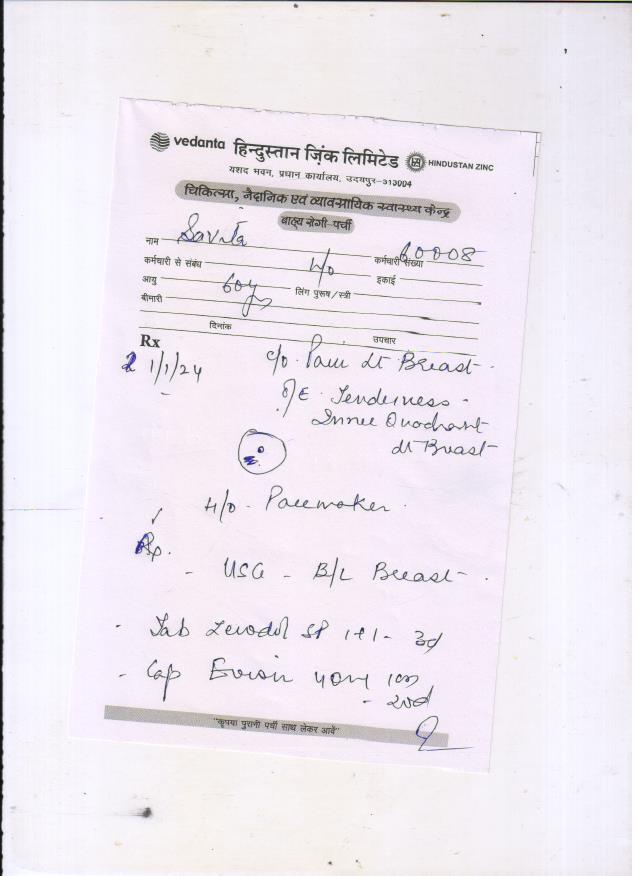 vedanta हिन्दुस्तान ज़िंक लिमिटेड HINDUSTAN ZINC
यशद भवन, प्रधान कार्यालय, उदयपुर-313004
चिकित्सा, नैदानिक एवं व्यावसायिक स्वास्थ्य केन्द्र
बाह्य रोगी-पर्ची
नाम Savita कर्मचारी संख्या 60008
कर्मचारी से संबंध इकाई
आयु 60y लिंग पुरूष/स्त्री
बीमारी
दिनांक उपचार
Rx
1/1/24 c/o. Pain Lt Breast.
O/E. Tenderness.
Inner Quadrant
Lt Breast
H/O. Pacemaker.
- USG - B/L Breast.
- Tab Zerodol SP 1+1- 3d
- Cap Evion 1 od
- 20d
"कृपया पुरानी पर्ची साथ लेकर आवें"